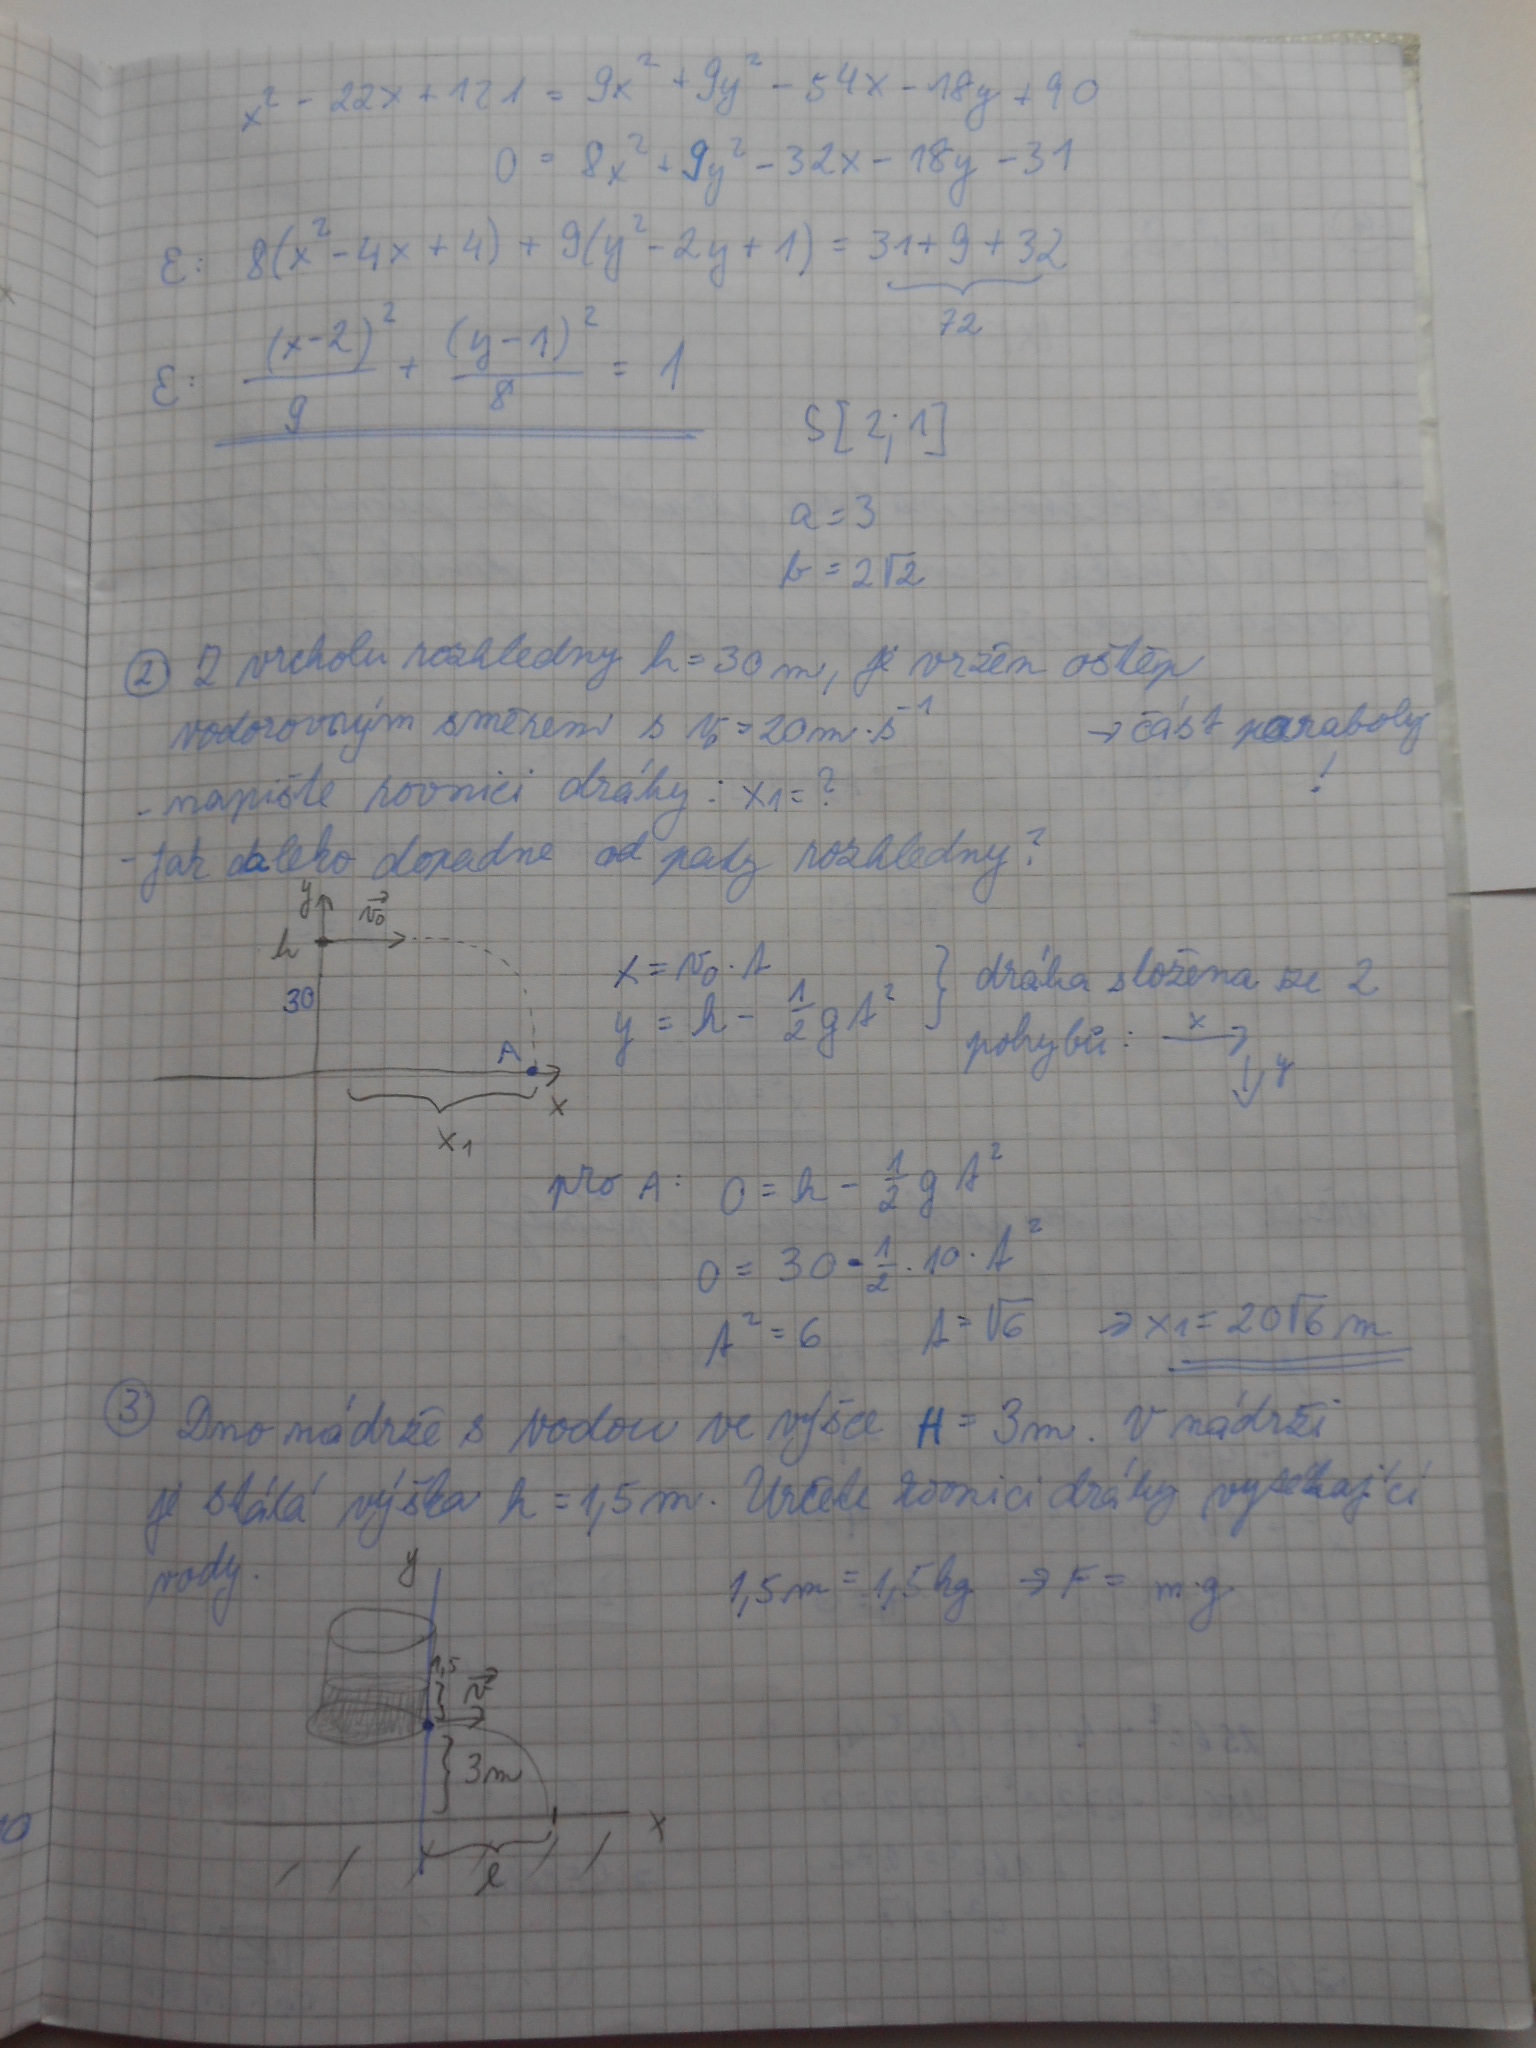 x² - 22x + 121 = 9x² + 9y² - 54x - 18y + 90
0 = 8x² + 9y² - 32x - 18y - 31
ε: 8(x² - 4x + 4) + 9(y² - 2y + 1) = 31 + 9 + 32
72
ε: (x-2)²/9 + (y-1)²/8 = 1
S[2;1]
a = 3
b = 2√2
② Z vrcholu rozhledny h = 30 m, je vržen oštěp
vodorovným směrem s v₀ = 20 m·s⁻¹ → část paraboly
!
- napište rovnici dráhy: x₁ = ?
- Jak daleko dopadne od paty rozhledny?
y
v₀
h
30
A
x
x₁
x = v₀·t
y = h - 1/2 g t² } dráha složena ze 2
pohybů: x
y
pro A: 0 = h - 1/2 g t²
0 = 30 - 1/2 · 10 · t²
t² = 6 t = √6 ⇒ x₁ = 20√6 m
③ Dno nádrže s vodou ve výšce H = 3m. V nádrži
je stálá výška h = 1,5 m. Určete rovnici dráhy vystékající
vody.
1,5 m = 1,5 kg → F = m·g
y
1,5
v
3m
x
l
10